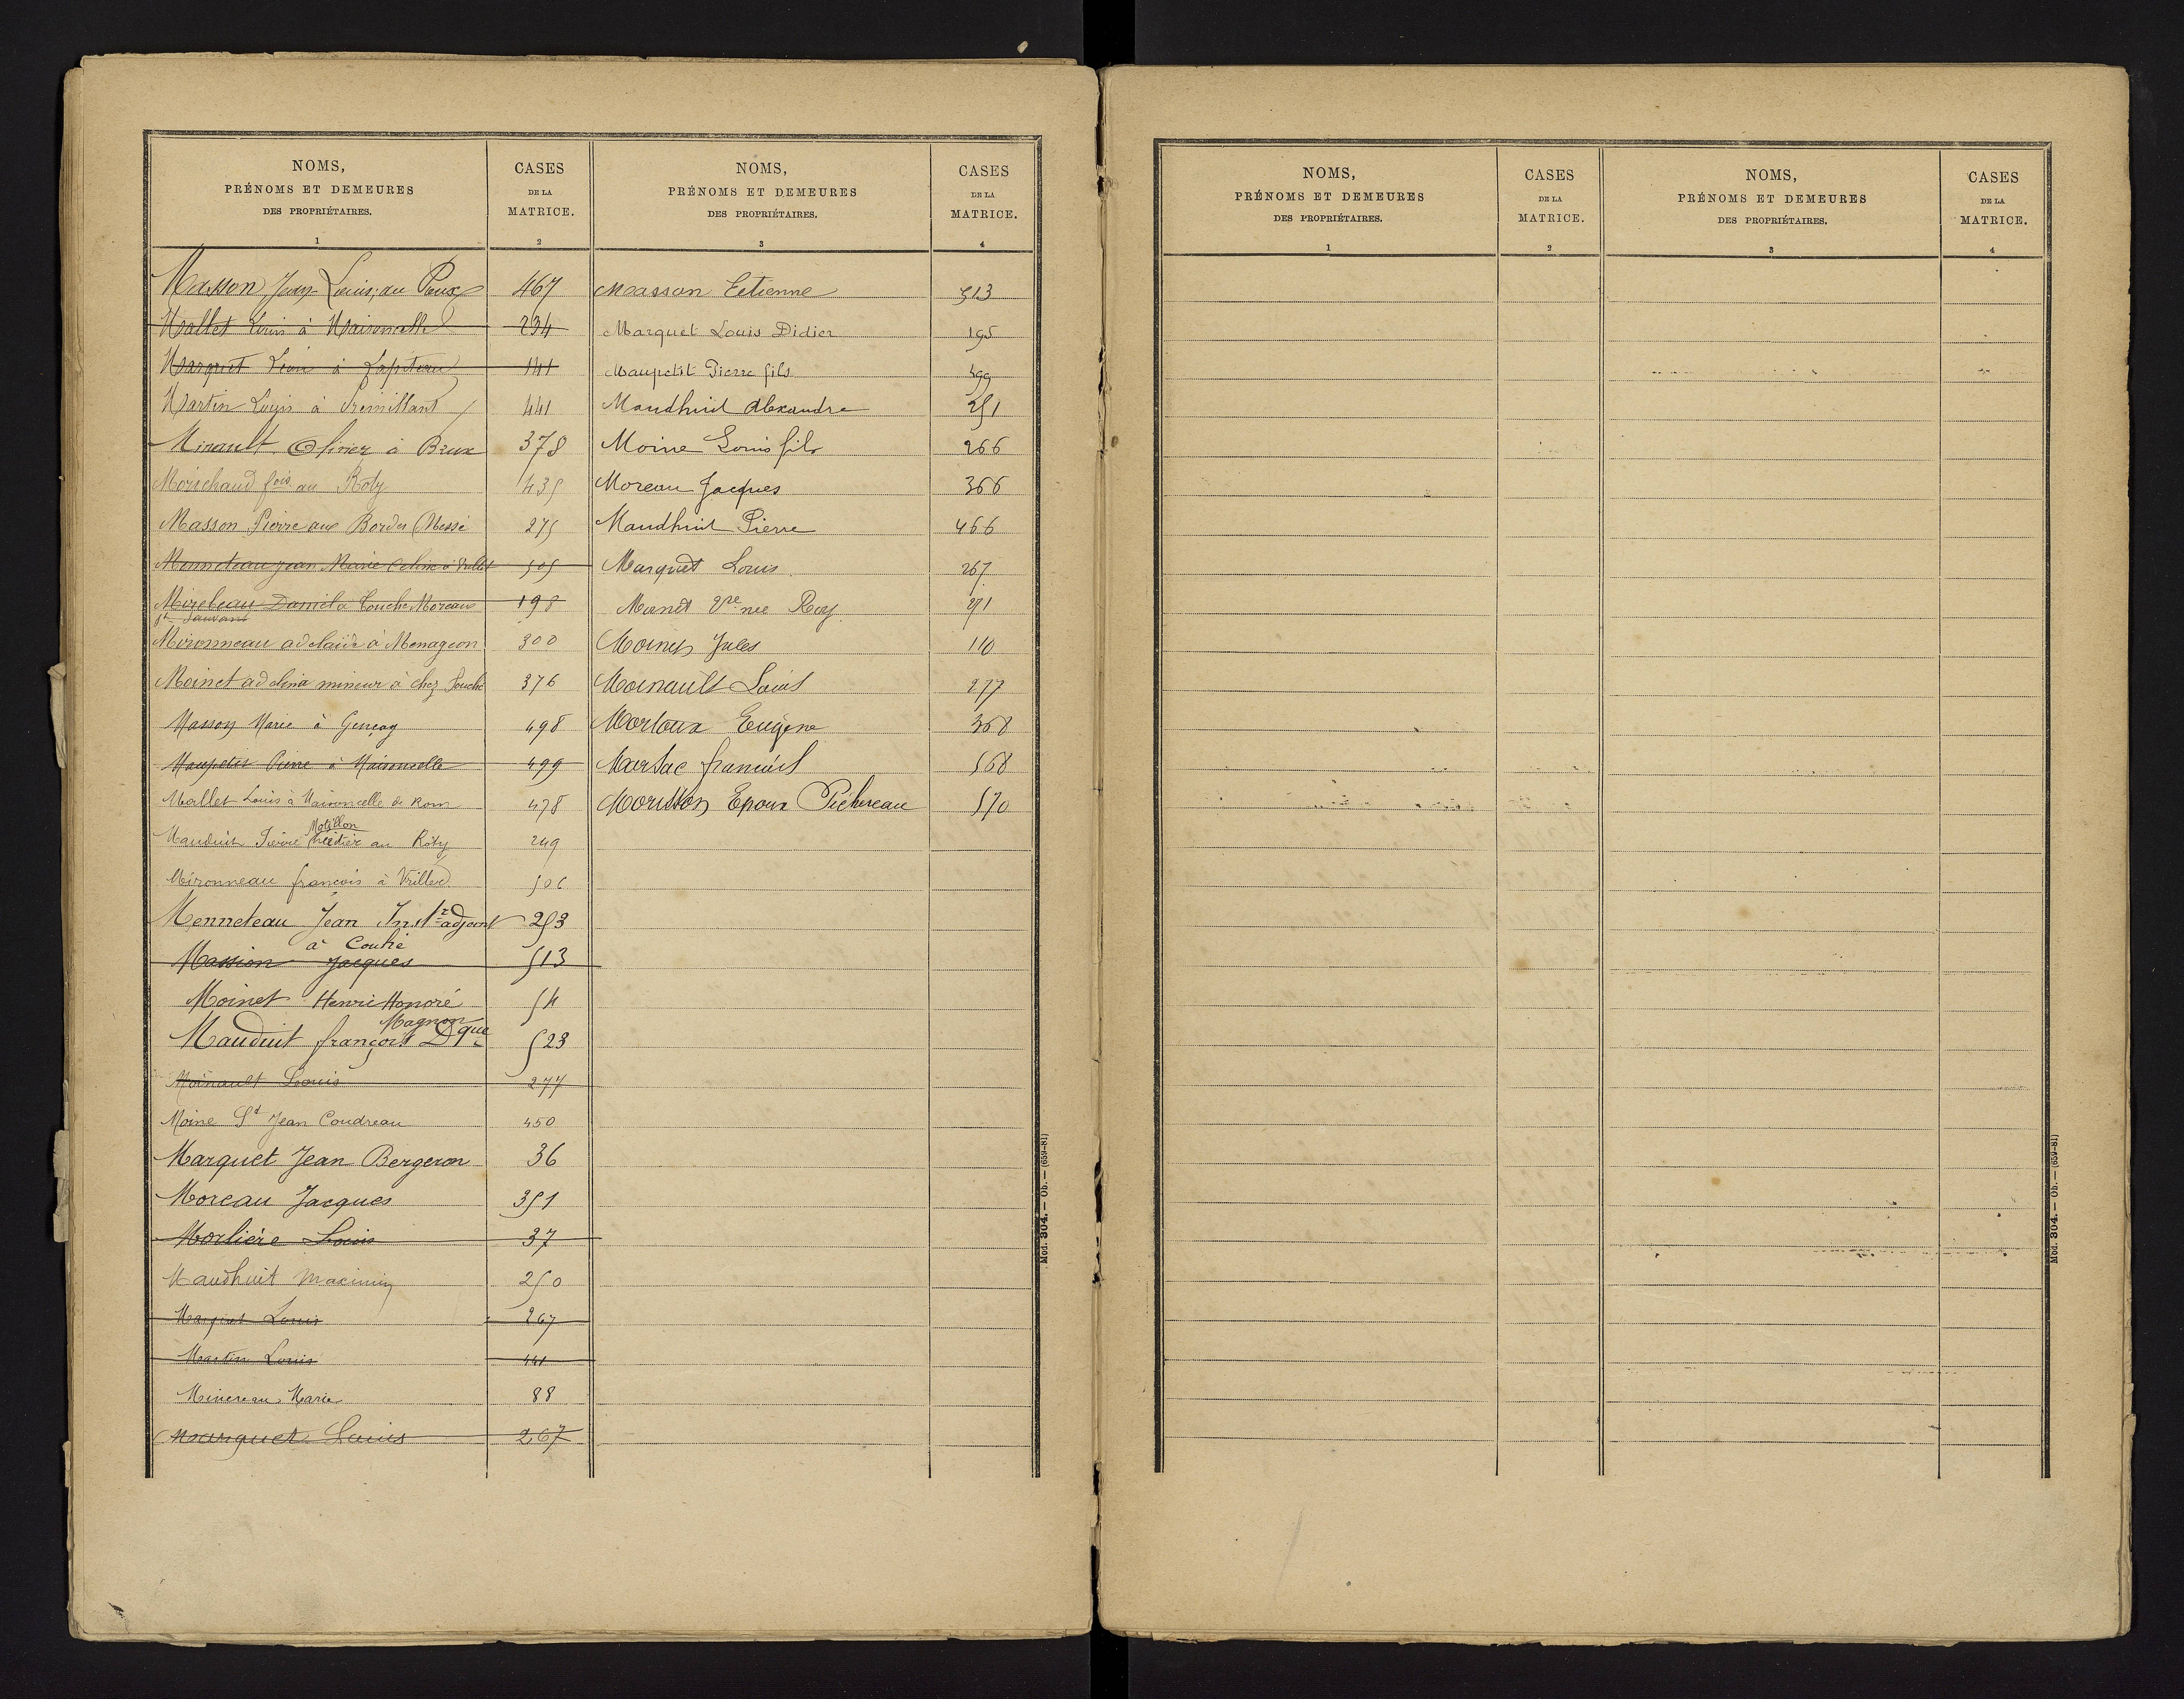 NOMS,
PRÉNOMS ET DEMEURES
DES PROPRIÉTAIRES.
1
CASES
DE LA
MATRICE.
2
NOMS,
PRÉNOMS ET DEMEURES
DES PROPRIÉTAIRES.
3
CASES
DE LA
MATRICE.
4
Masson Jean Louis, au Peux 467
Mallet Louis à Maisoncelle 234
Marquet Léon à 141
Martin Louis à 441
Minault Olivier à Brux 378
Morichaud fois au Roty 435
Masson Pierre aux Bordes (Messé 275
Menneteau Jean Marie Celine à 505
Mirebeau Daniel à Touche Moreau 198
St Sauvant
Mironneau adelaïde à Menageon 300
Moinet adelina mineur à chez Souché 376
Masson Marie à Gençay 498
Maupetit Pierre à Maisoncelle 499
Mallet Louis à Maisoncelle de Rom 478
Motillon
Mauduit Pierre au Roty 249
Mironneau françois à Vrillet 506
Menneteau Jean Instr adjoint 253
à Couhé
Massion Jacques 513
Moinet Henri Honoré 54
Magnon
Mauduit françois Dque 523
Moinault Louis 277
Moine St Jean Coudreau 450
Marquet Jean Bergeron 36
Moreau Jacques 351
Morlière Louis 37
Maudhuit Maximin 250
Marquet Louis 267
Martin Louis 441
Minereau Marie 88
Marquet Louis 267
Masson Etienne 513
Marquet Louis Didier 195
Maupetit Pierre fils 499
Maudhuit Alexandre 251
Moine Louis fils 266
Moreau Jacques 366
Maudhuit Pierre 466
Marquet Louis 267
Moinet Vve née Roy 271
Moinet Jules 110
Moinault Louis 277
Morloux Eugène 368
Marsac françois 568
Morisson Epoux Pichereau 570
Mod. 304. — Ob. — (659-81)
NOMS,
PRÉNOMS ET DEMEURES
DES PROPRIÉTAIRES.
1
CASES
DE LA
MATRICE.
2
NOMS,
PRÉNOMS ET DEMEURES
DES PROPRIÉTAIRES.
3
CASES
DE LA
MATRICE.
4
Mod. 304. — Ob. — (659-81)